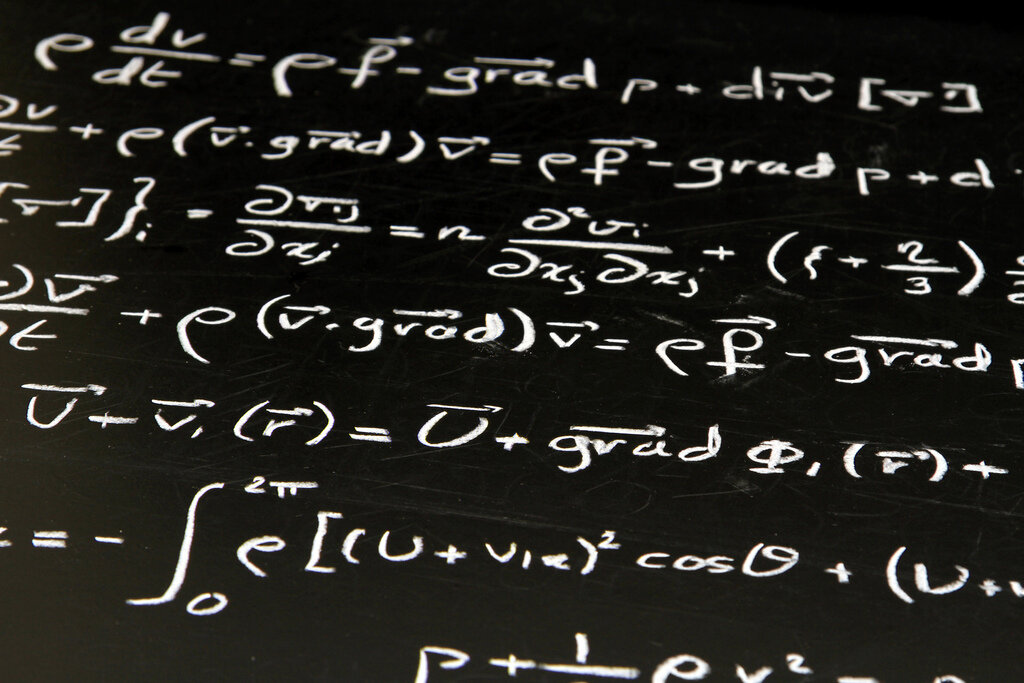 ρ dv/dt = ρ f⃗ - grad⃗ p + div⃗ [σ]
∂v/t + ρ (v⃗ . grad⃗) v⃗ = ρ f⃗ - grad p + d
[σ]}ᵢ = ∂σᵢⱼ/∂xⱼ = η ∂²vᵢ/∂xⱼ∂xⱼ + (ζ + η/3)
)v⃗/∂t + ρ (v⃗ . grad⃗) v⃗ = ρ f⃗ - grad⃗
U⃗ + v⃗₁ (r⃗) = U⃗ + grad⃗ Φ₁ (r⃗) +
= - ∫₀²π ρ [(U + v₁ₓ)² cosθ + (U +
p + 1/ ρ v²